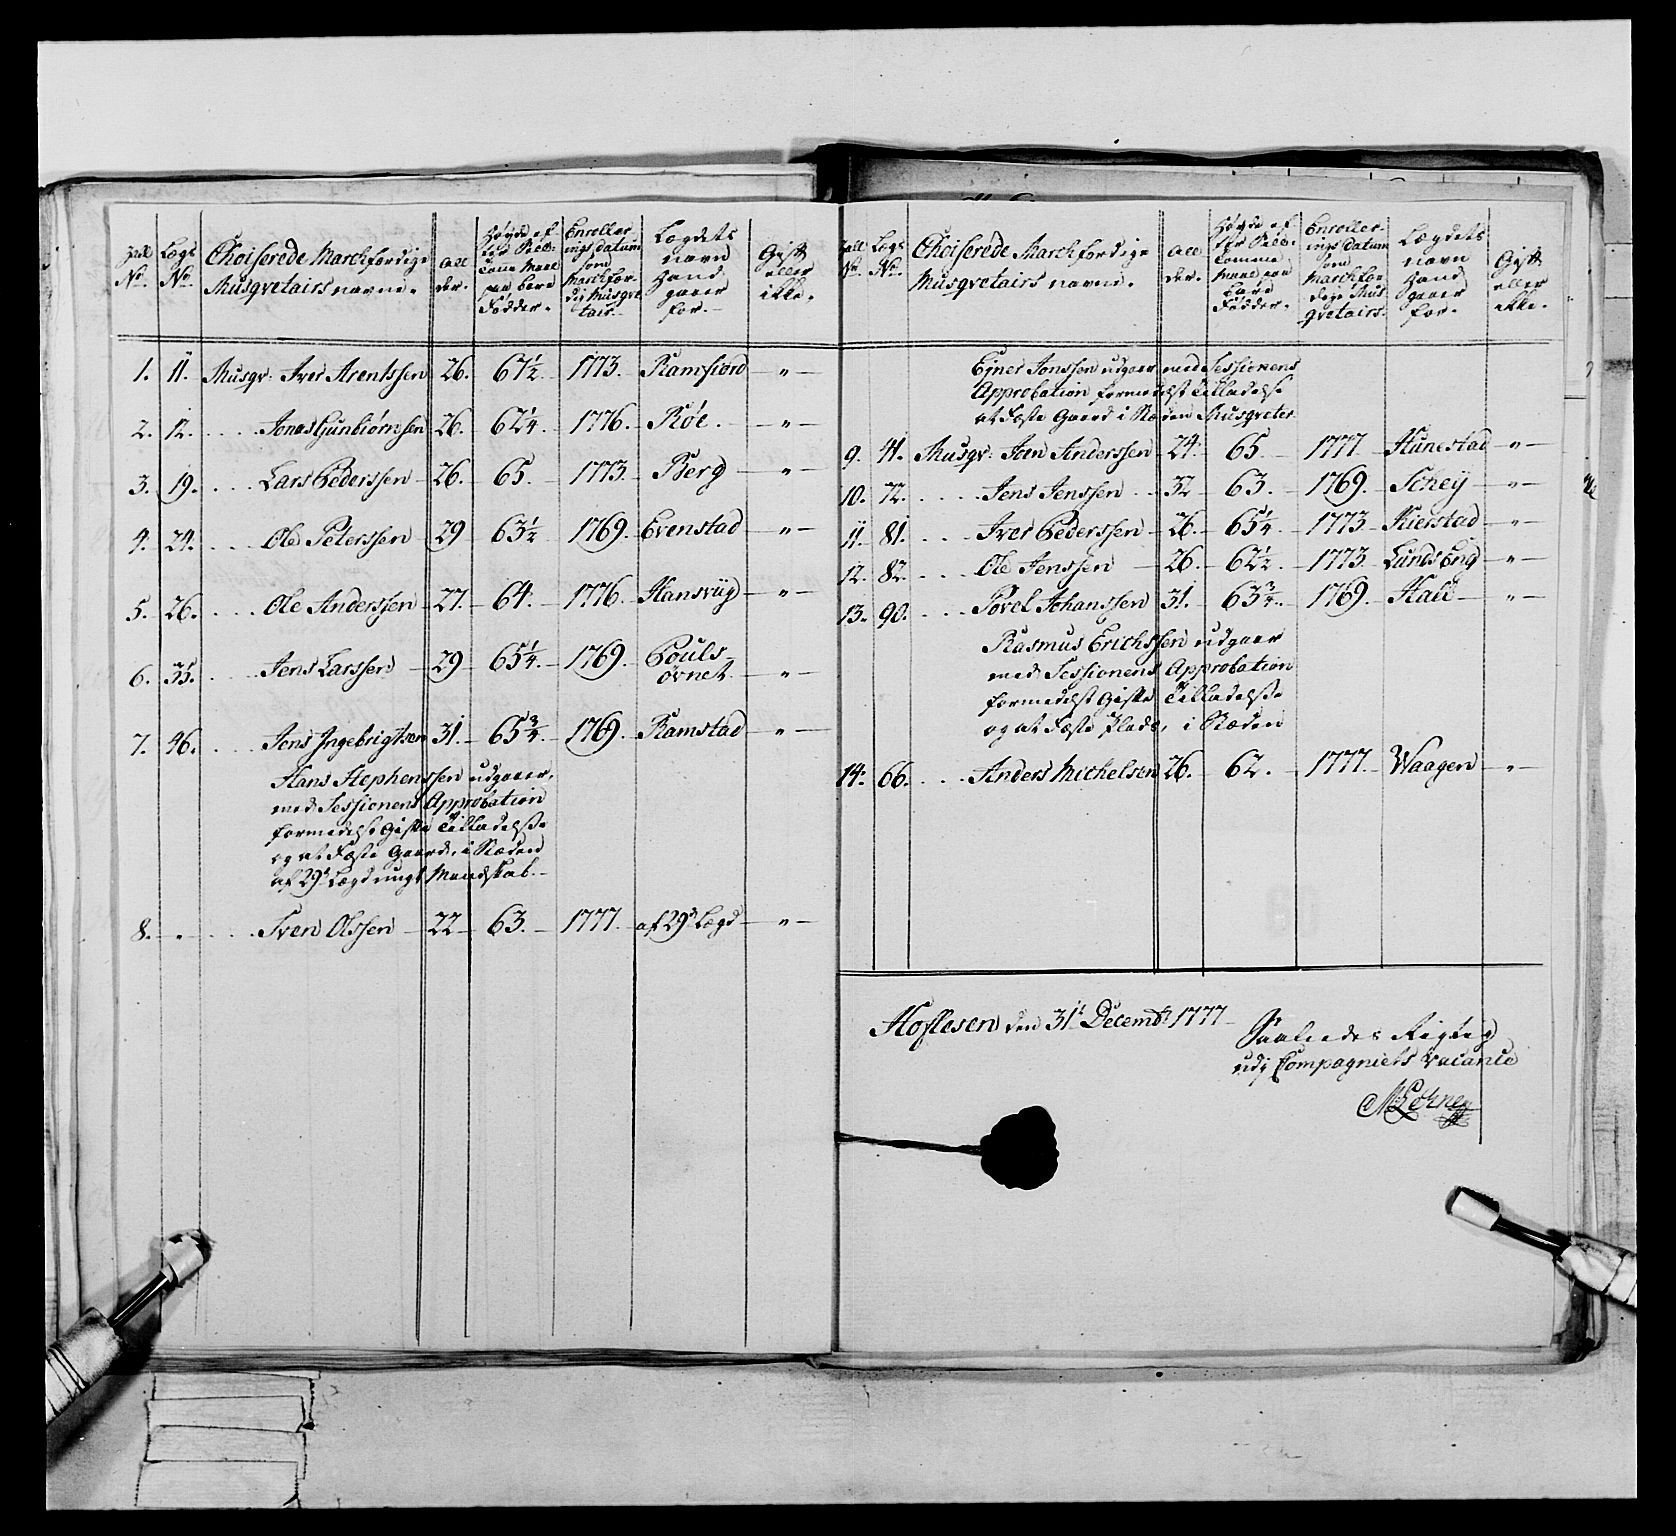 Zall No. Lægs No. Choiserede Marchfærdige Musqvetairs navne. All der. Høyde ef ter Reko Tomme Maal paa bare Fødder. Enroller- ings datum som Marchfær- dig Musqve tair. Lægdets navn hand gaaer for. Gift eller ikke.
1. 11. Musqr: Iver Arentssen 26. 67½ 1773. Ramfiord — " —
2. 12. .... Jonas Gunbiørnsen 26. 62¼. 1776. Røe. — " —
3. 19. ... Lars Pederssen 26. 65. 1773. Berg — " —
4. 24. ... Ole Peterssen 29 63½ 1769. Evenstad — " —
5. 26. ... Ole Anderssen 27. 64. 1776. Hansviig — " —
6. 35. ... Jens Larssen 29 65¼. 1769. Pouls-
øvnet. — " —
7. 46. ... Jens Ingebrigtsen 31. 65¾. 1769. Ramstad — " —
Hans Stephenssen udgaaer,
med Sessionens Approbation
formedelst Gifte Tilladelse
og at Fæste Gaard, i Stæden
af 29de Lægd ungt Mandskab.
8. " ... Sven Olssen 22 63. 1777. af 29de Lægd — " —
Zall No. Lægs No. Choiserede Marchfærdige Musqvetairs navne. All der. Høyde ef ter Tomme Maal paa bare Fødder. Enroller- ings datum som Marchfær dige Mus qvetairs. Lægdets navn hand gaaer for. Gift eller ikke.
Ejner Jonssen udgaaer med Sessionens
Approbation formedelst Tilladelse
at Fæste Gaard i Stæden Musqveter
9. 41. Musqr: Joen Anderssen 24. 65. 1777. Hunestad — " —
10. 72. .... Jens Jenssen 32 63. 1769. Schey — " —
11. 81. ... Iver Pederssen 26. 65¼ 1773 Kierstad — " —
12. 82. ... Ole Jenssen 26. 62½ 1773. Lunds Eng — " —
13. 90. ... Povel Johanssen 31. 63¾. 1769. Hall — " —
Rasmus Erichssen udgaaer
med Sessionens Approbation
formedelst Gifte Tilladelse
og at Fæste Plads, i Stæden
14. 66. ... Anders Michelsen 26. 62. 1777. Waagen — " —
Hoflesen den 31t Decembr 1777
Saaledes Rigtig
udj Compagniets Vacance